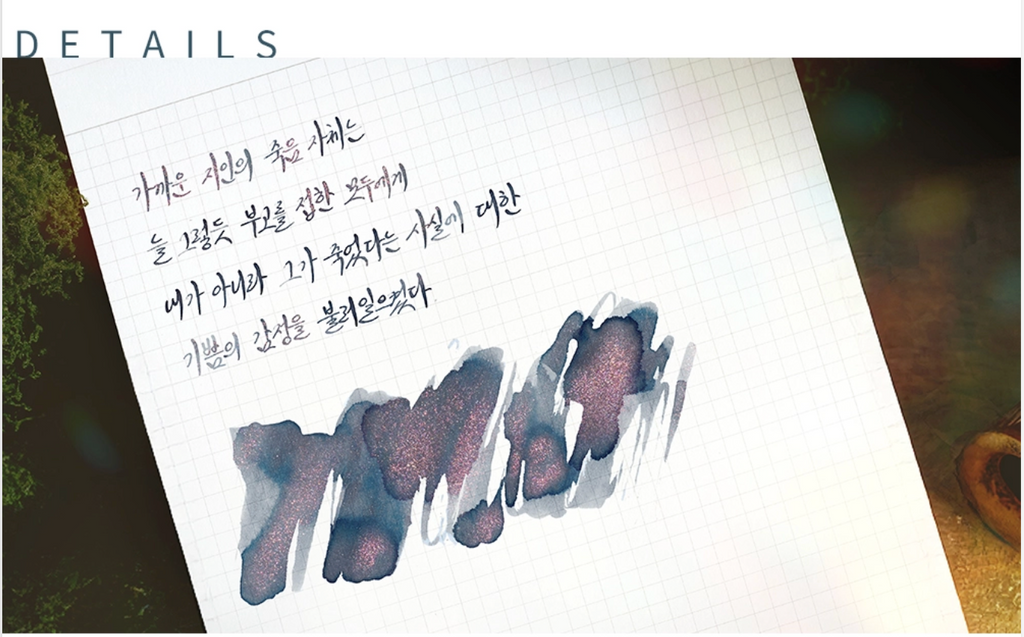 DETAILS
가까운 지인의 죽음 자체는
늘 그렇듯 부고를 접한 모두에게
내가 아니라 그가 죽었다는 사실에 대한
기쁨의 감정을 불러일으켰다